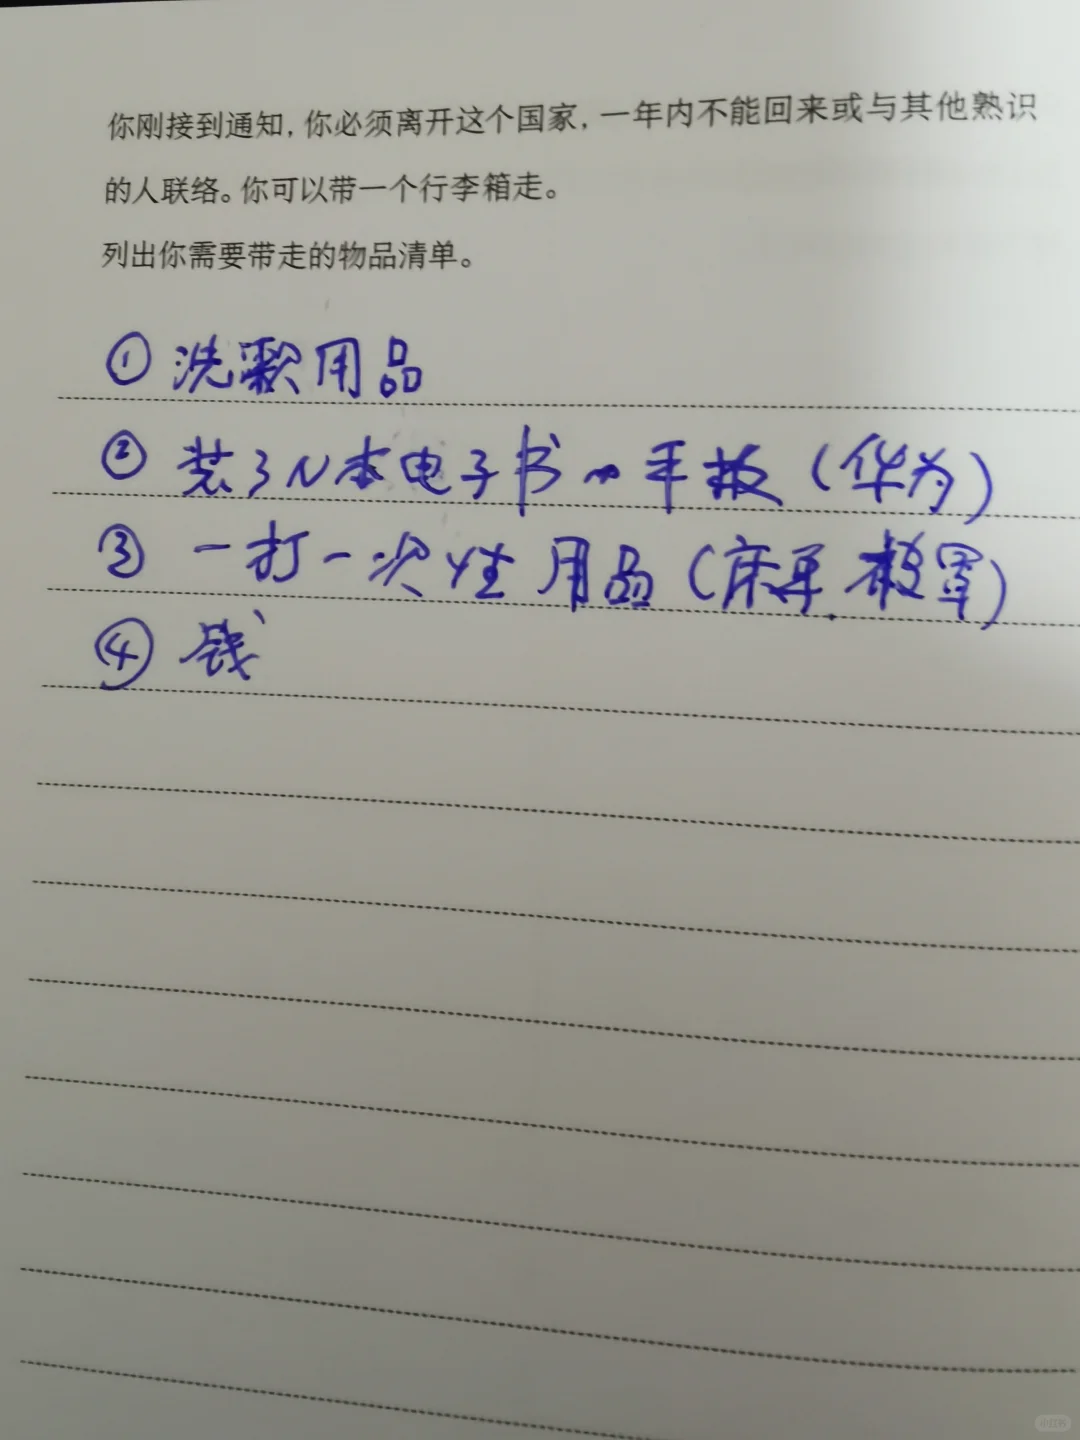 你刚接到通知，你必须离开这个国家，一年内不能回来或与其他熟识
的人联络。你可以带一个行李箱走。
列出你需要带走的物品清单。
① 洗漱用品
② 装了N本电子书的平板（华为）
③ 一打一次性用品（床单、被罩）
④ 钱
小红书